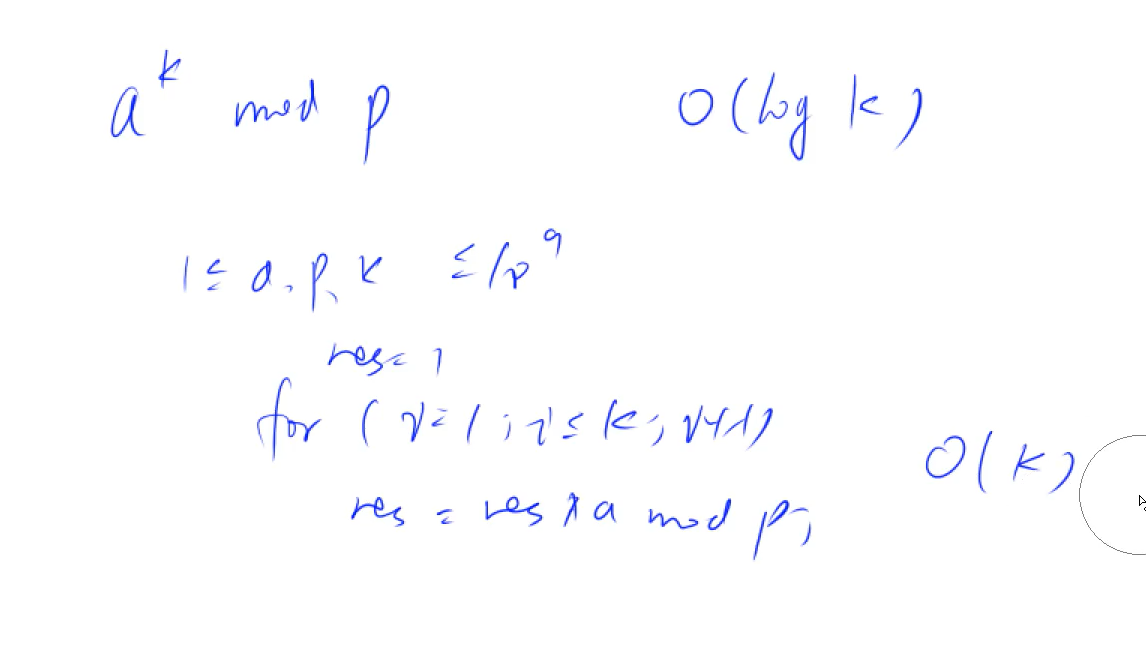 a^k mod p O(log k)
1 ≤ a, p, k ≤ 10^9
res = 1
for ( i = 1 ; i ≤ k ; i++ )
O(k)
res = res * a mod p;